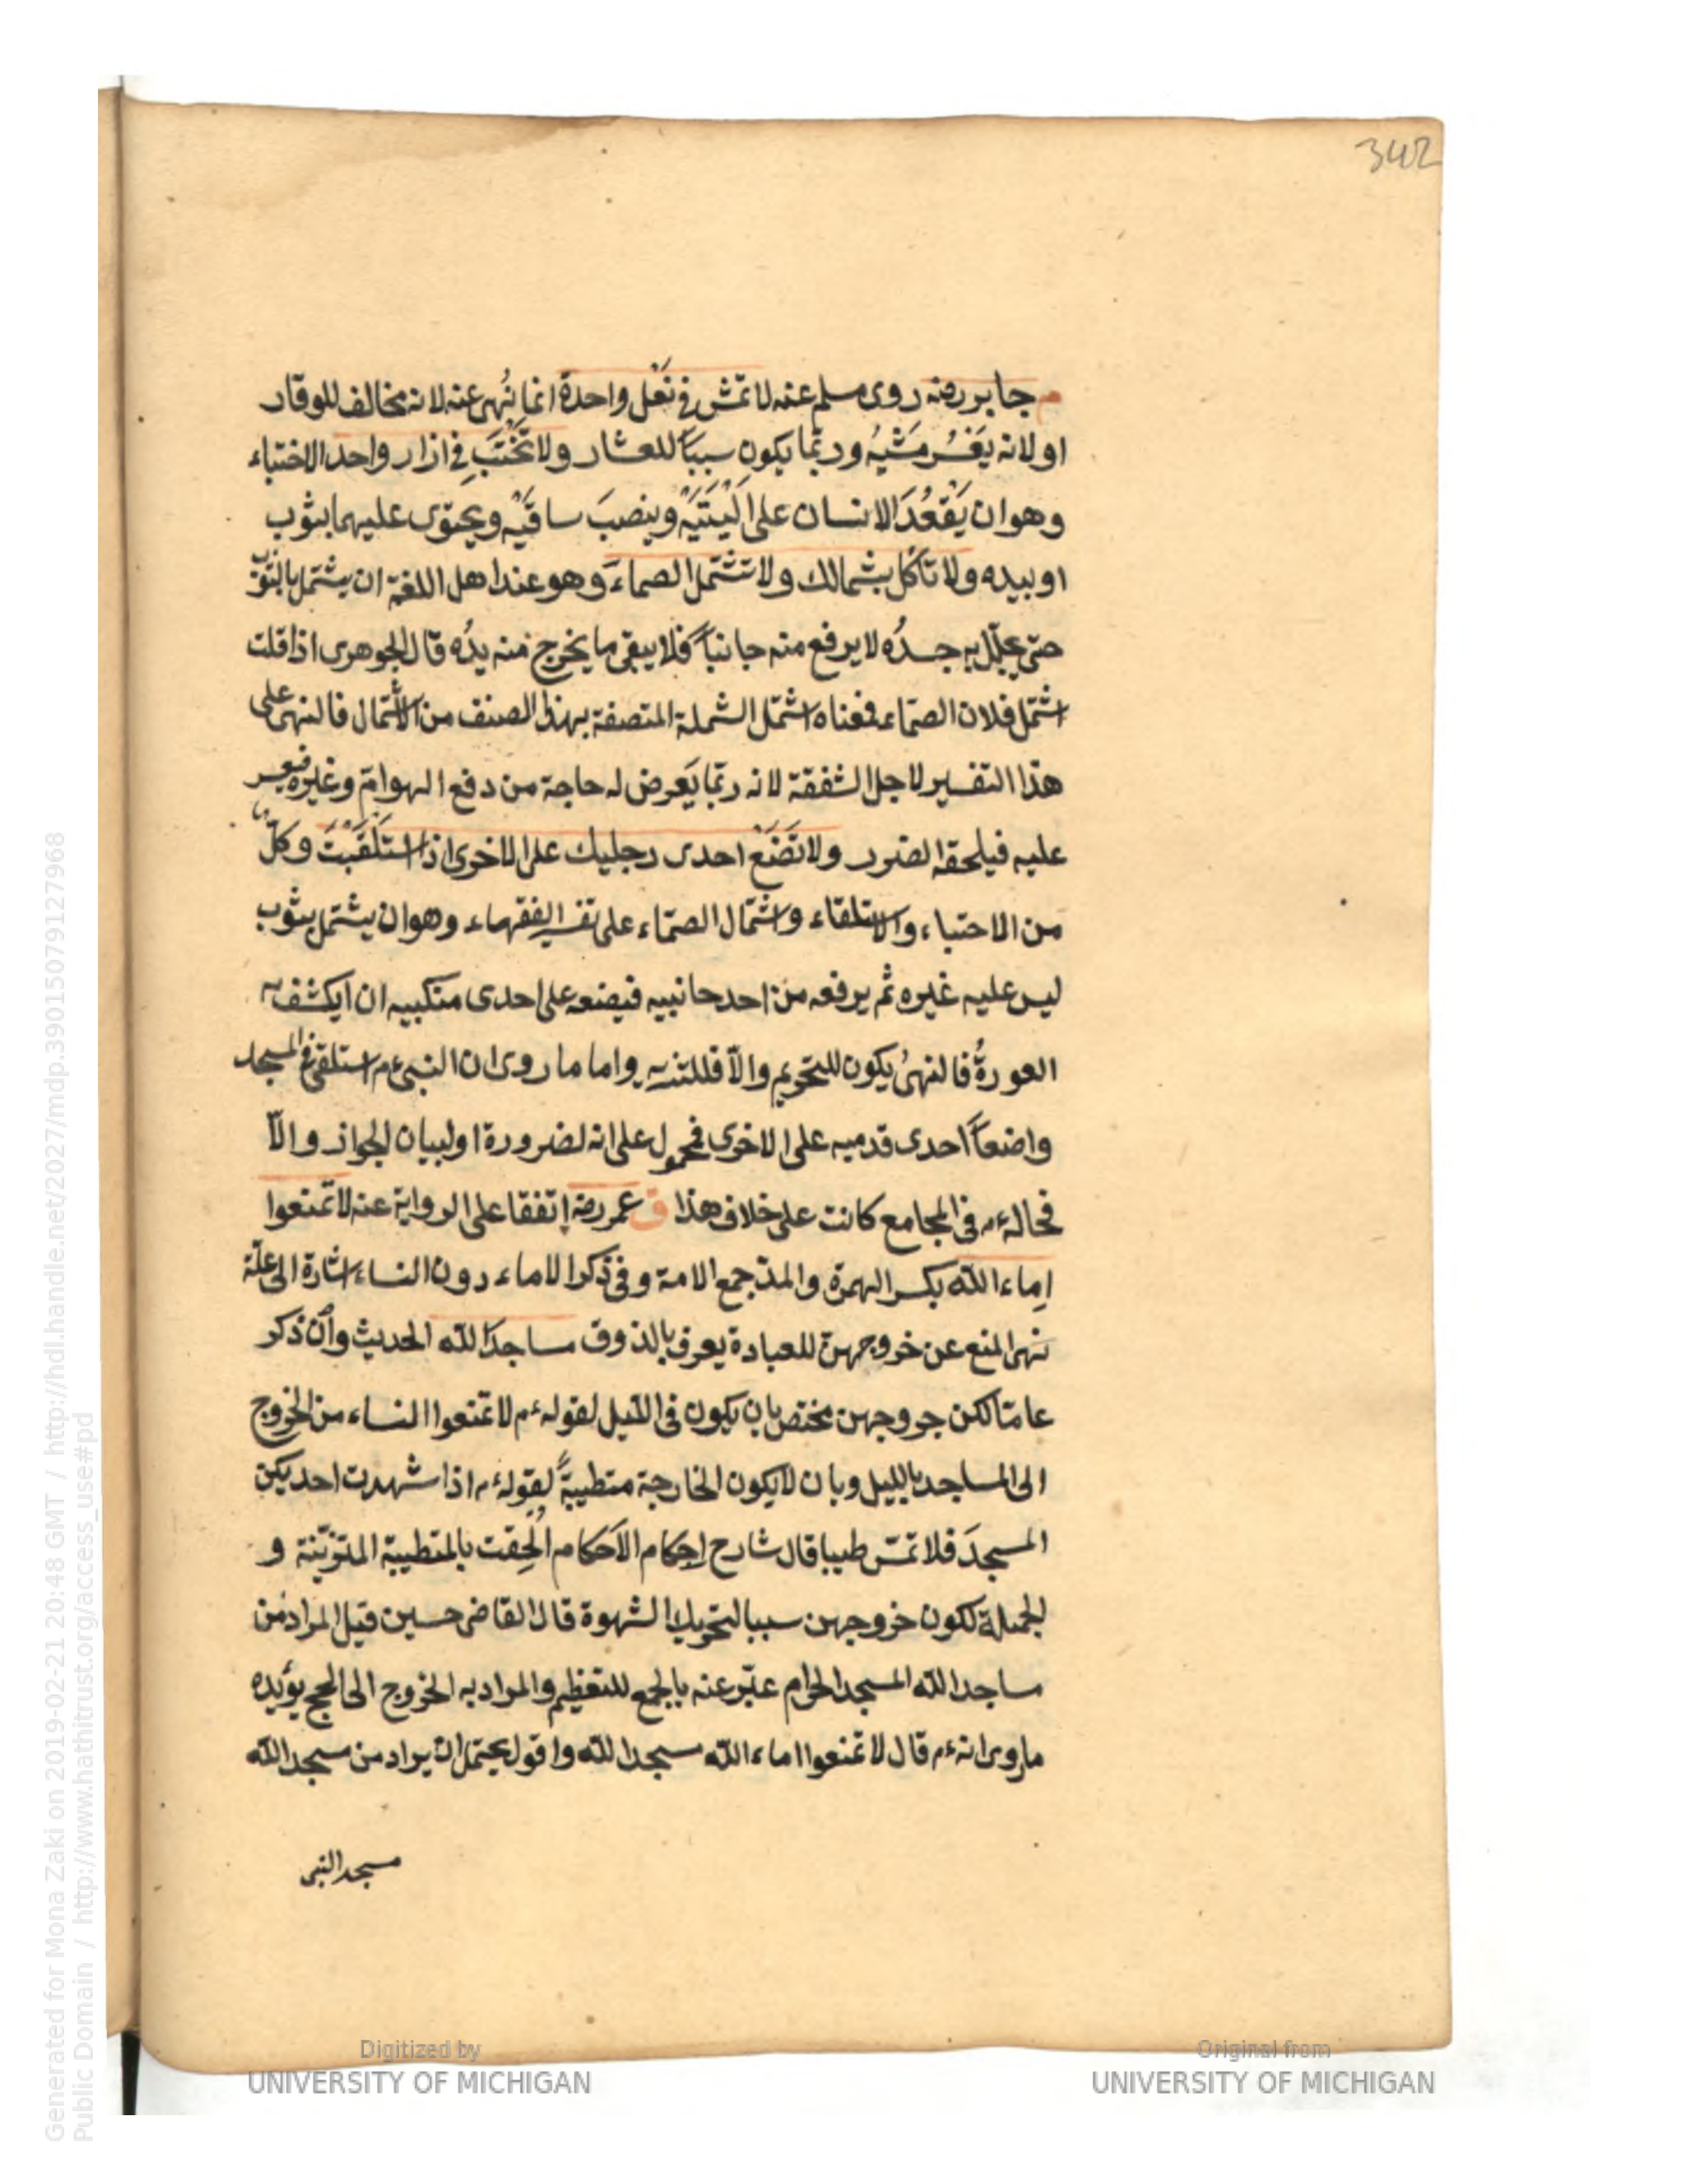 342
م جابر رضه روى مسلم عنه لا تمش في نَعْل واحدة انما نُهى عنه لانه مخالف للوقار
او لانه يَعْسُر مَشْيُه وربّما يكون سبباً للعثار ولا تَحْتَبِ في ازار واحد الاحتباء
وهو ان يَقْعُدَ الانسان على اَلْيَتَيْهِ وينصبَ ساقَيْه ويحتوى عليهما بثوب
او بيده ولا تأكل بشمالك ولا تشتمل الصماءَ وهو عند اهل اللغة ان يشتمل بالثوب
حتى يجلّل به جسدُه لا يرفع منه جانباً فلا يبقى ما يخرج منه يدُه قال الجوهرى اذا قلت
اشتمل فلان الصمّاء فمعناه اشتمل الشملة المتصفة بهذا الصنف من الاشتمال فالنهى على
هذا التفسير لاجل الشفقة لانه ربّما يَعرض له حاجة من دفع الهوامّ وغيره فيعسر
عليه فيلحقه الضرر ولا تَضَعْ احدى رجليك على الاخرى اذا استَلْقَيْتَ وكلّ
من الاحتباء والاستلقاء واشتمال الصمّاء على تفسير الفقهاء وهو ان يشتمل بثوب
ليس عليه غيره ثم يرفعه من احد جانبيه فيضعه على احدى منكبيه ان انكشف به
العورةُ فالنهىُ يكون للتحريم والّا فللتنزيه واما ما روى ان النبى ءم استلقى في المسجد
واضعاً احدى قدميه على الاخرى فمحمول على انه لضرورة او لبيان الجواز والّا
فحاله ءم في المجامع كانت على خلاف هذا ق عمر رضه اتفقا على الرواية عنه لا تمنعوا
اِماء الله بكسر الهمزة والمدّ جمع الامة وفى ذكر الاماء دون النساء اشارة الى علّة
نهى المنع عن خروجهنّ للعبادة يعرف بالذوق مساجدَ الله الحديث وان ذكر
عامّا لكن خروجهن مختص بان يكون في الليل لقوله ءم لا تمنعوا النساء من الخروج
الى المساجد بالليل وبان لا يكون الخارجة متطيبةً لقوله ءم اذا شهدت احديكن
المسجدَ فلا تمسّ طيبا قال شارح احكام الاحكام اُلحِقت بالمتطيبة المتزيّنة و
الجميلة لكون خروجهن سببا لتحريك الشهوة قال القاضى حسين قيل المراد من
مساجد الله المسجد الحرام عبّر عنه بالجمع للتعظيم والمراد به الخروج الى الحج يؤيده
ما روى انه ءم قال لا تمنعوا اماء الله مسجد الله واقول يحتمل ان يراد من مسجد الله
مسجد النبى
Generated for Mona Zaki on 2019-02-21 20:48 GMT / http://hdl.handle.net/2027/mdp.39015079127968
Public Domain / http://www.hathitrust.org/access_use#pd
Digitized by
UNIVERSITY OF MICHIGAN
Original from
UNIVERSITY OF MICHIGAN